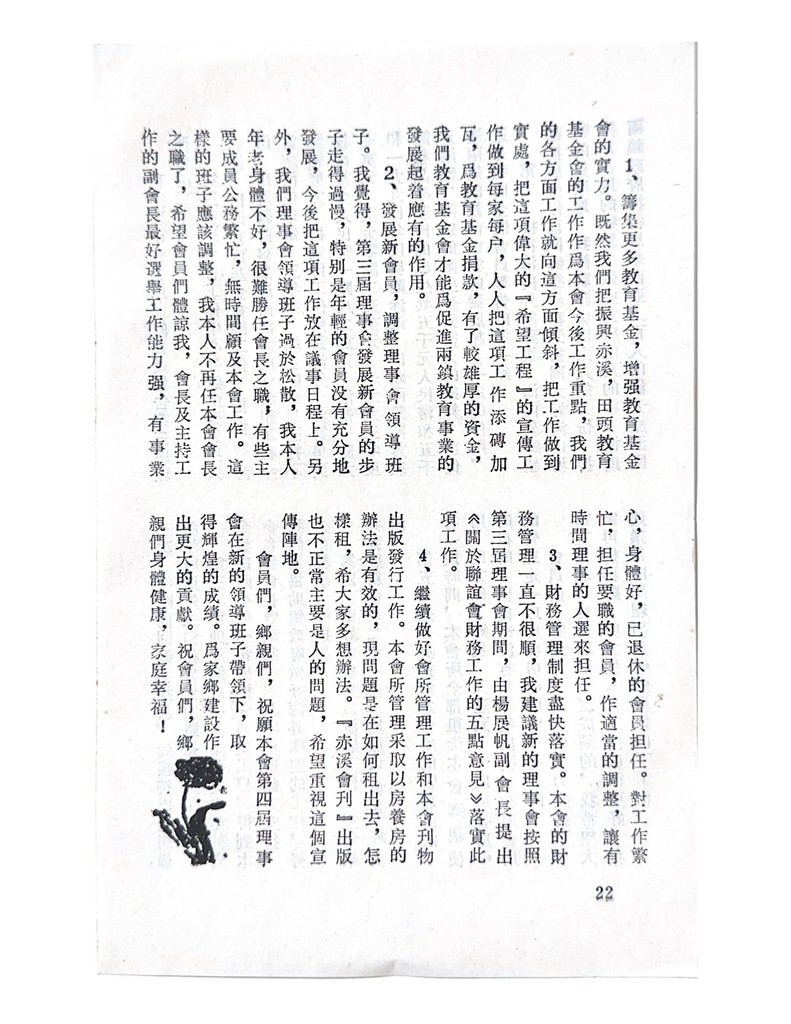 1、籌集更多教育基金，增强教育基金
會的實力。既然我們把振興赤溪，田頭教育
基金會的工作作爲本會今後工作重點，我們
的各方面工作就向這方面傾斜，把工作做到
實處，把這項偉大的『希望工程』的宣傳工
作做到每家每户，人人把這項工作添磚加
瓦，爲教育基金捐款，有了較雄厚的資金，
我們教育基金會才能爲促進兩鎮教育事業的
發展起着應有的作用。
2、發展新會員，調整理事會領導班
子。我覺得，第三屆理事會發展新會員的步
子走得過慢，特别是年輕的會員没有充分地
發展，今後把這項工作放在議事日程上。另
外，我們理事會領導班子過於松散，我本人
年考身體不好，很難勝任會長之職；有些主
要成員公務繁忙，無時間顧及本會工作。這
樣的班子應該調整，我本人不再任本會會長
之職了，希望會員們體諒我，會長及主持工
作的副會長最好選舉工作能力强，有事業
心，身體好，已退休的會員担任。對工作繁
忙，担任要職的會員，作適當的調整，讓有
時間理事的人選來担任。
3、財務管理制度盡快落實。本會的財
務管理一直不很順，我建議新的理事會按照
第三屆理事會期間，由楊展帆副會長提出
《關於聯誼會財務工作的五點意見》落實此
項工作。
4、繼續做好會所管理工作和本會刊物
出版發行工作。本會所管理采取以房養房的
辦法是有效的，現問題是在如何租出去，怎
樣租，希大家多想辦法。『赤溪會刊』出版
也不正常主要是人的問題，希望重視這個宣
傳陣地。
會員們，鄉親們，祝願本會第四屆理事
會在新的領導班子帶領下，取
得輝煌的成績。爲家鄉建設作
出更大的貢獻。祝會員們，鄉
親們身體健康，家庭幸福！
22